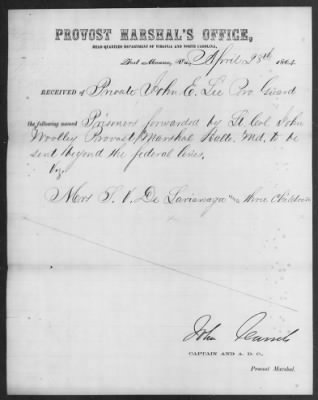 PROVOST MARSHAL'S OFFICE,
HEAD-QUARTERS DEPARTMENT OF VIRGINIA AND NORTH CAROLINA,
Fort Monroe, Va., April 28th 1864
RECEIVED of Private John E. Lee Pro Guard
the following named Prisoners forwarded by Lt Col John
Woolley Provost Marshal Balto. Md. to be
sent beyond the federal lines.
Viz
Mrs S. V. De Lariesnaga and three Children
John
CAPTAIN AND A. D. C.,
Provost Marshal.